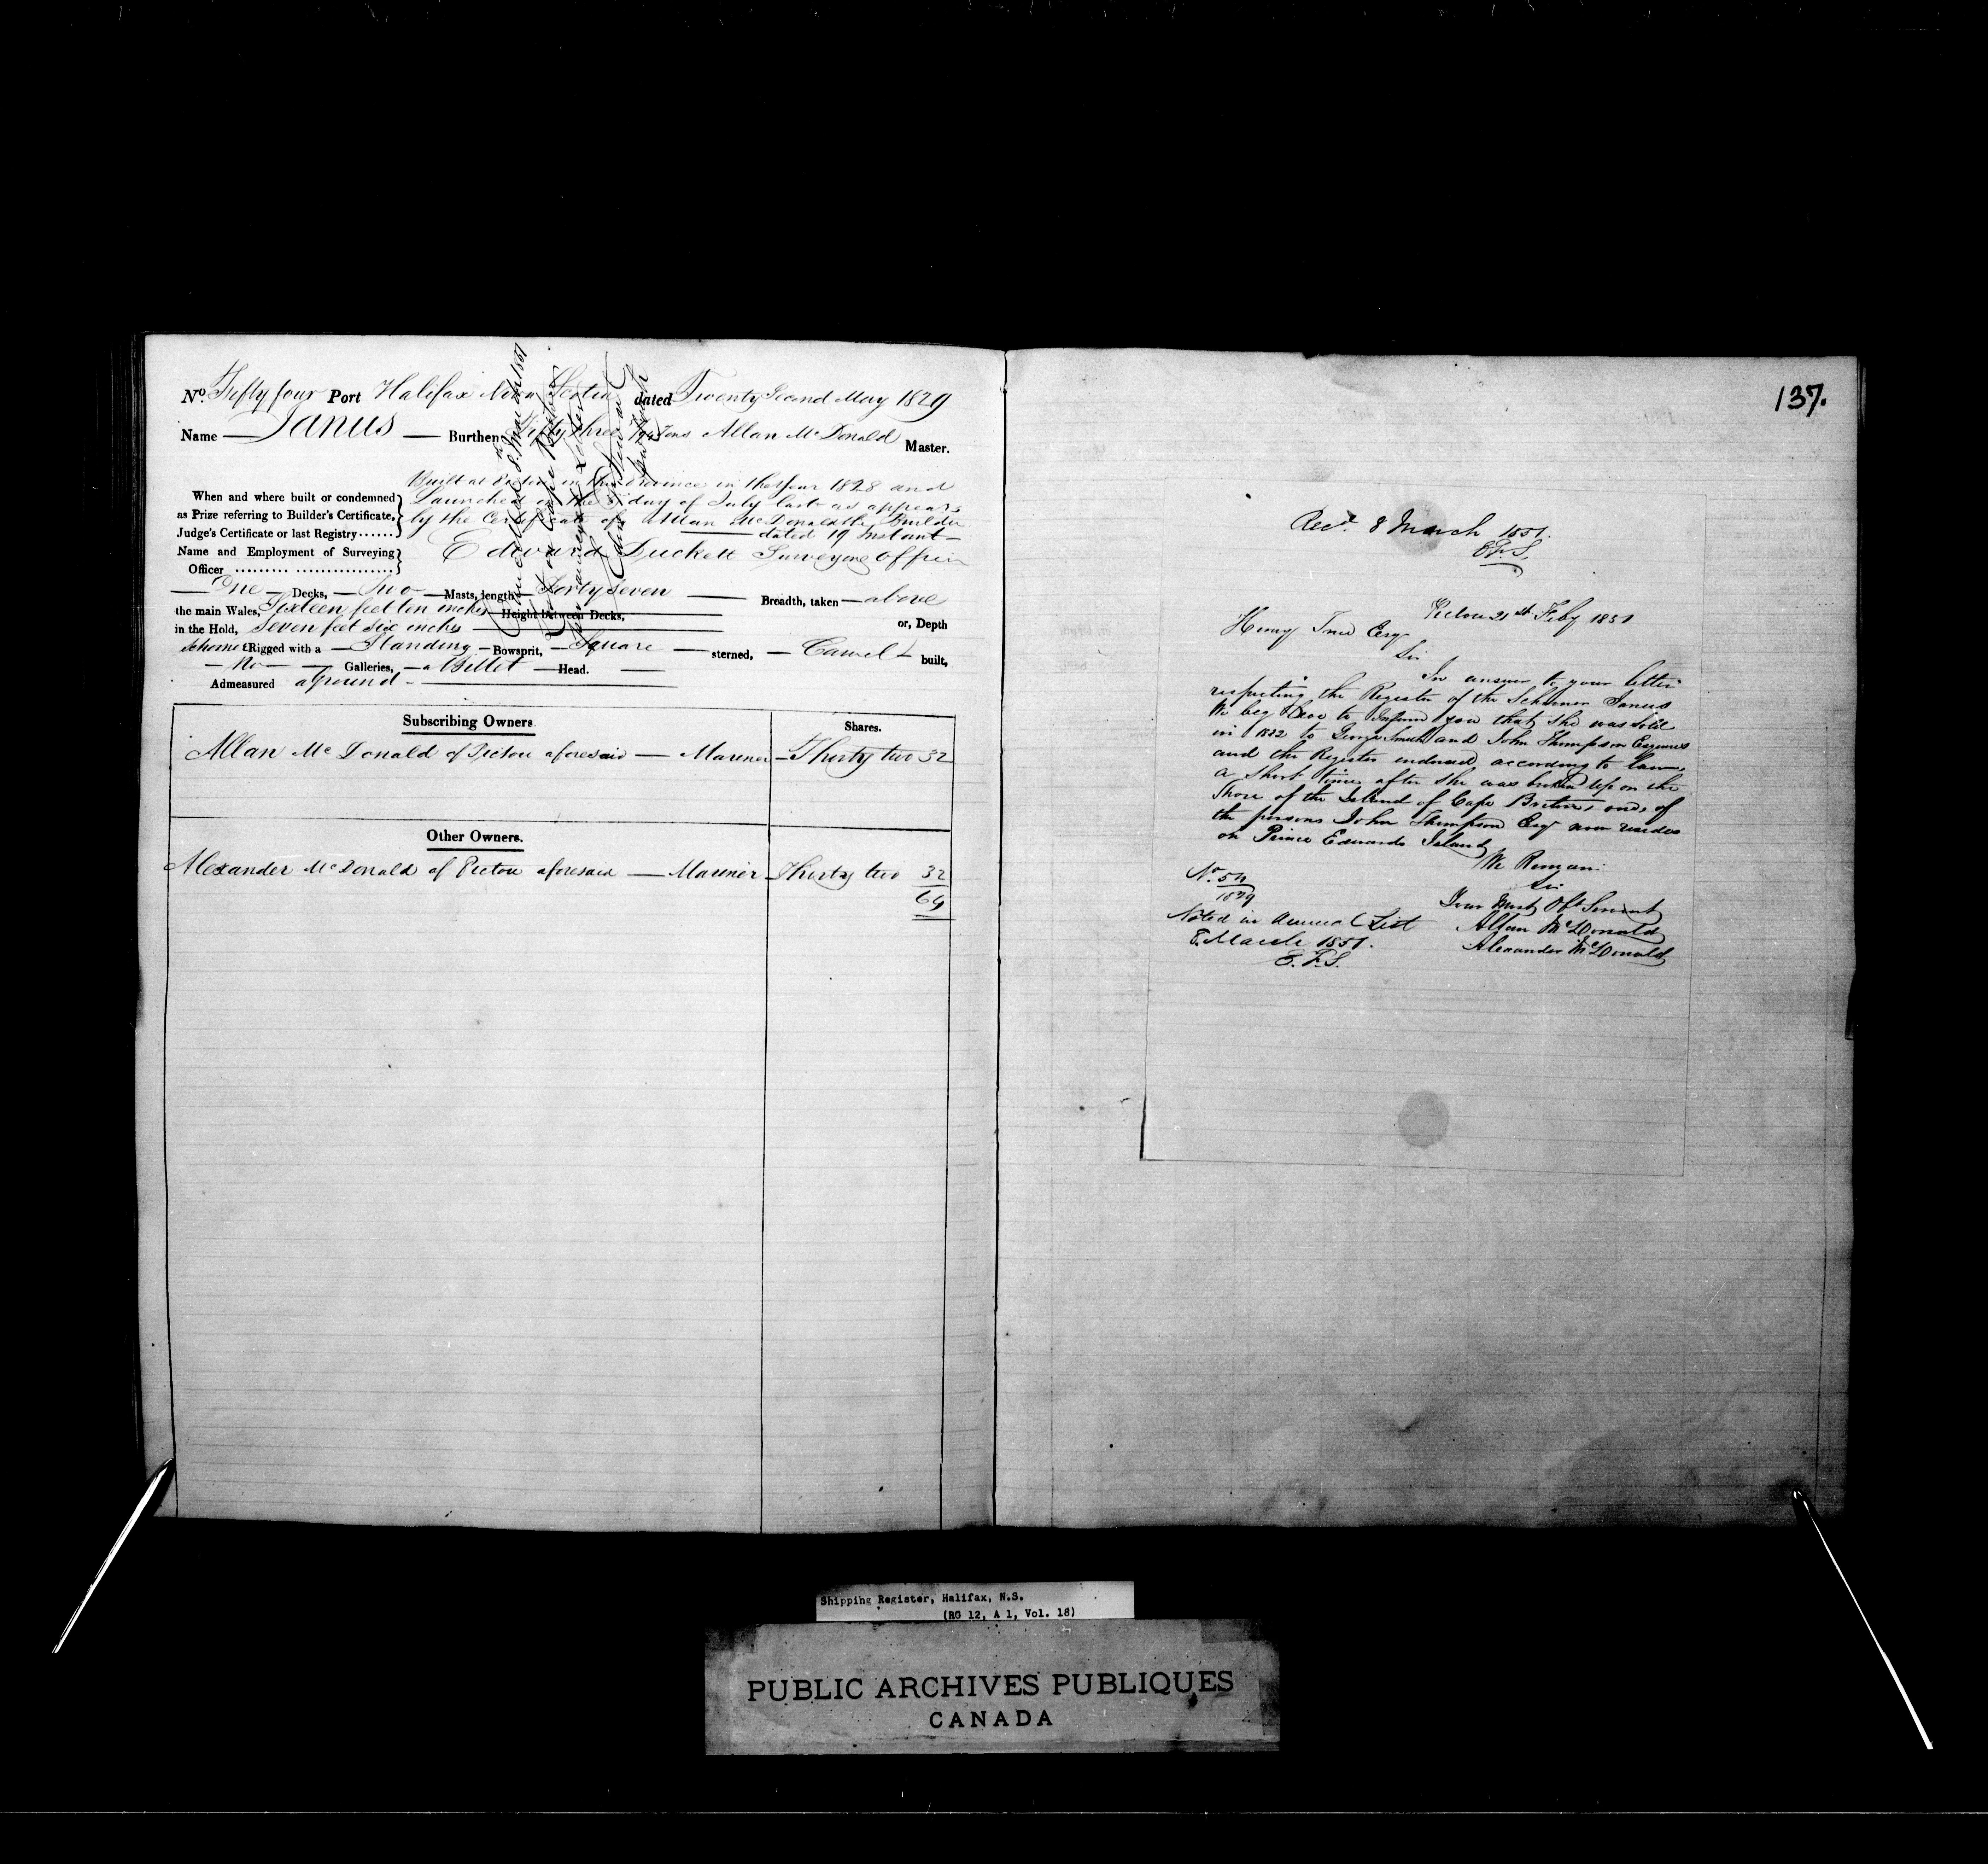 No. Fifty four Port Halifax Nova Scotia dated Twenty Second May 1829
Name — Janus — Burthen Fifty three Tons Allan McDonald Master.
Built at Pictou in this Province in the Year 1828 and
When and where built or condemned Launched on the day of July last as appears
as Prize referring to Builder's Certificate, by the Certificate of Allan McDonald the Builder
Judge's Certificate or last Registry...... dated 19 Instant —
Name and Employment of Surveying Edward Duckett Surveying Officer
Officer ......... ................
— One — Decks, — Two — Masts, length — Forty seven — Breadth, taken — above
the main Wales, Sixteen feet ten inches Height between Decks,
in the Hold, Seven feet six inches or, Depth
Schooner Rigged with a — Standing — Bowsprit, — Square — sterned, — Carvel — built,
— No — Galleries, — a Billet — Head.
Admeasured aground —
Cancelled 8 March 1851
on Cape Breton
Letter
Subscribing Owners. Shares.
Allan McDonald of Pictou aforesaid — Mariner — Thirty two 32
Other Owners.
Alexander McDonald of Pictou aforesaid — Mariner Thirty two 32
64
137.
Recd. 8 March 1851.
E.F.S.
Pictou 21st Feby 1851
Henry Esqr
Sir
In answer to your letter
respecting the Register of the Schooner Janus
We beg leave to Inform you that she was sold
in 1832 to George Smith and John Thompson Esquires
and the Register endorsed according to law,
a Short time after she was broken up on the
Shore of the Island of Cape Breton, one of
the persons John Thompson Esq now resides
on Prince Edwards Island
We Remain
Sir
Your Most Obt Servants
Allan McDonald
Alexander McDonald
No. 54
1829
Noted in Annual List
8 March 1851.
E.F.S.
Shipping Register, Halifax, N.S.
(RG 12, A 1, Vol. 18)
PUBLIC ARCHIVES PUBLIQUES
CANADA